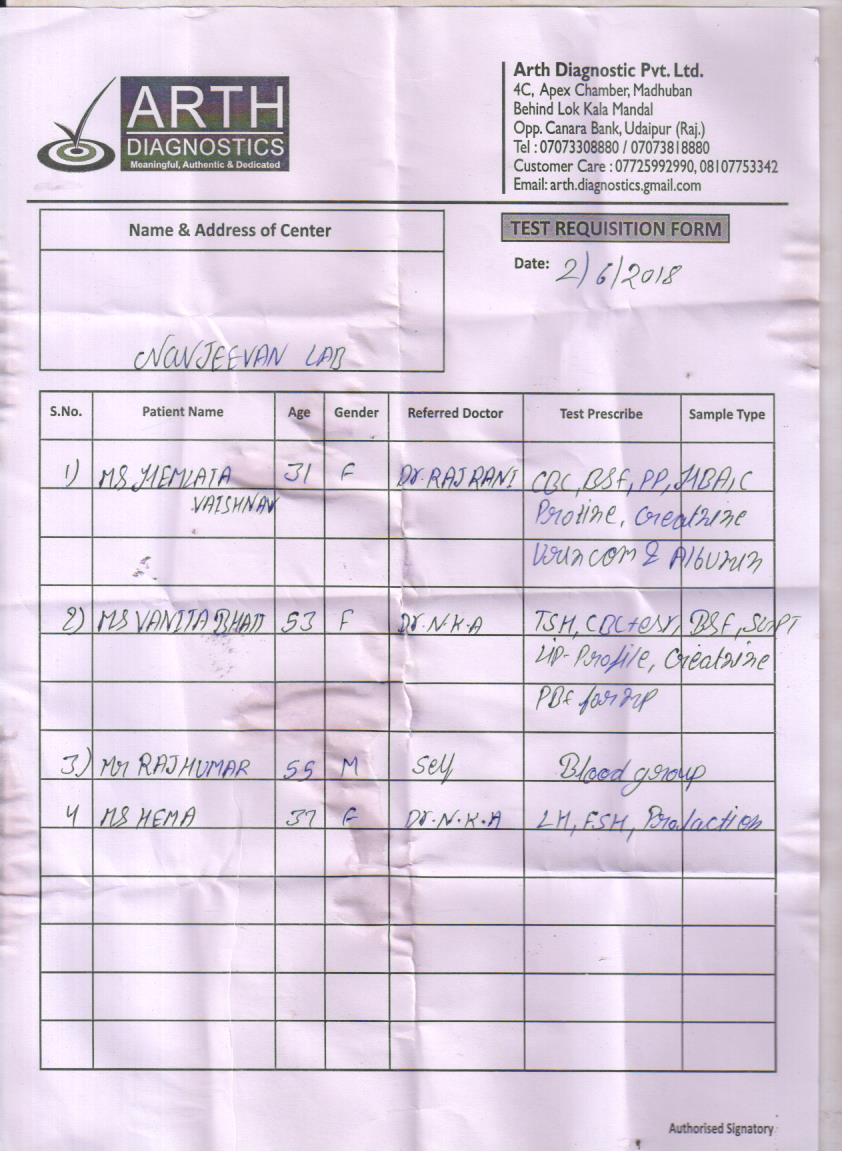 ARTH
DIAGNOSTICS
Meaningful, Authentic & Dedicated
Arth Diagnostic Pvt. Ltd.
4C, Apex Chamber, Madhuban
Behind Lok Kala Mandal
Opp. Canara Bank, Udaipur (Raj.)
Tel : 07073308880 / 07073818880
Customer Care : 07725992990, 08107753342
Email: arth.diagnostics.gmail.com
Name & Address of Center
TEST REQUISITION FORM
Date: 2/6/2018
NAVJEEVAN LAB
S.No. Patient Name Age Gender Referred Doctor Test Prescribe Sample Type
1) MS HEMLATA 31 F Dr. RAJRANI CBC, BSF, PP, HBA1C
VAISHNAV Protine, Creatnine
& Albumin
2) MS VANITA BHATT 53 F Dr. N.K.A TSH, CBC+esr, BSF, SGPT
LIP- Profile, Creatnine
PBF for mp
3) Mr RAJHUMAR 55 M Self Blood group
4 MS HEMA 37 F Dr. N.K.A LH, FSH, Prolaction
Authorised Signatory